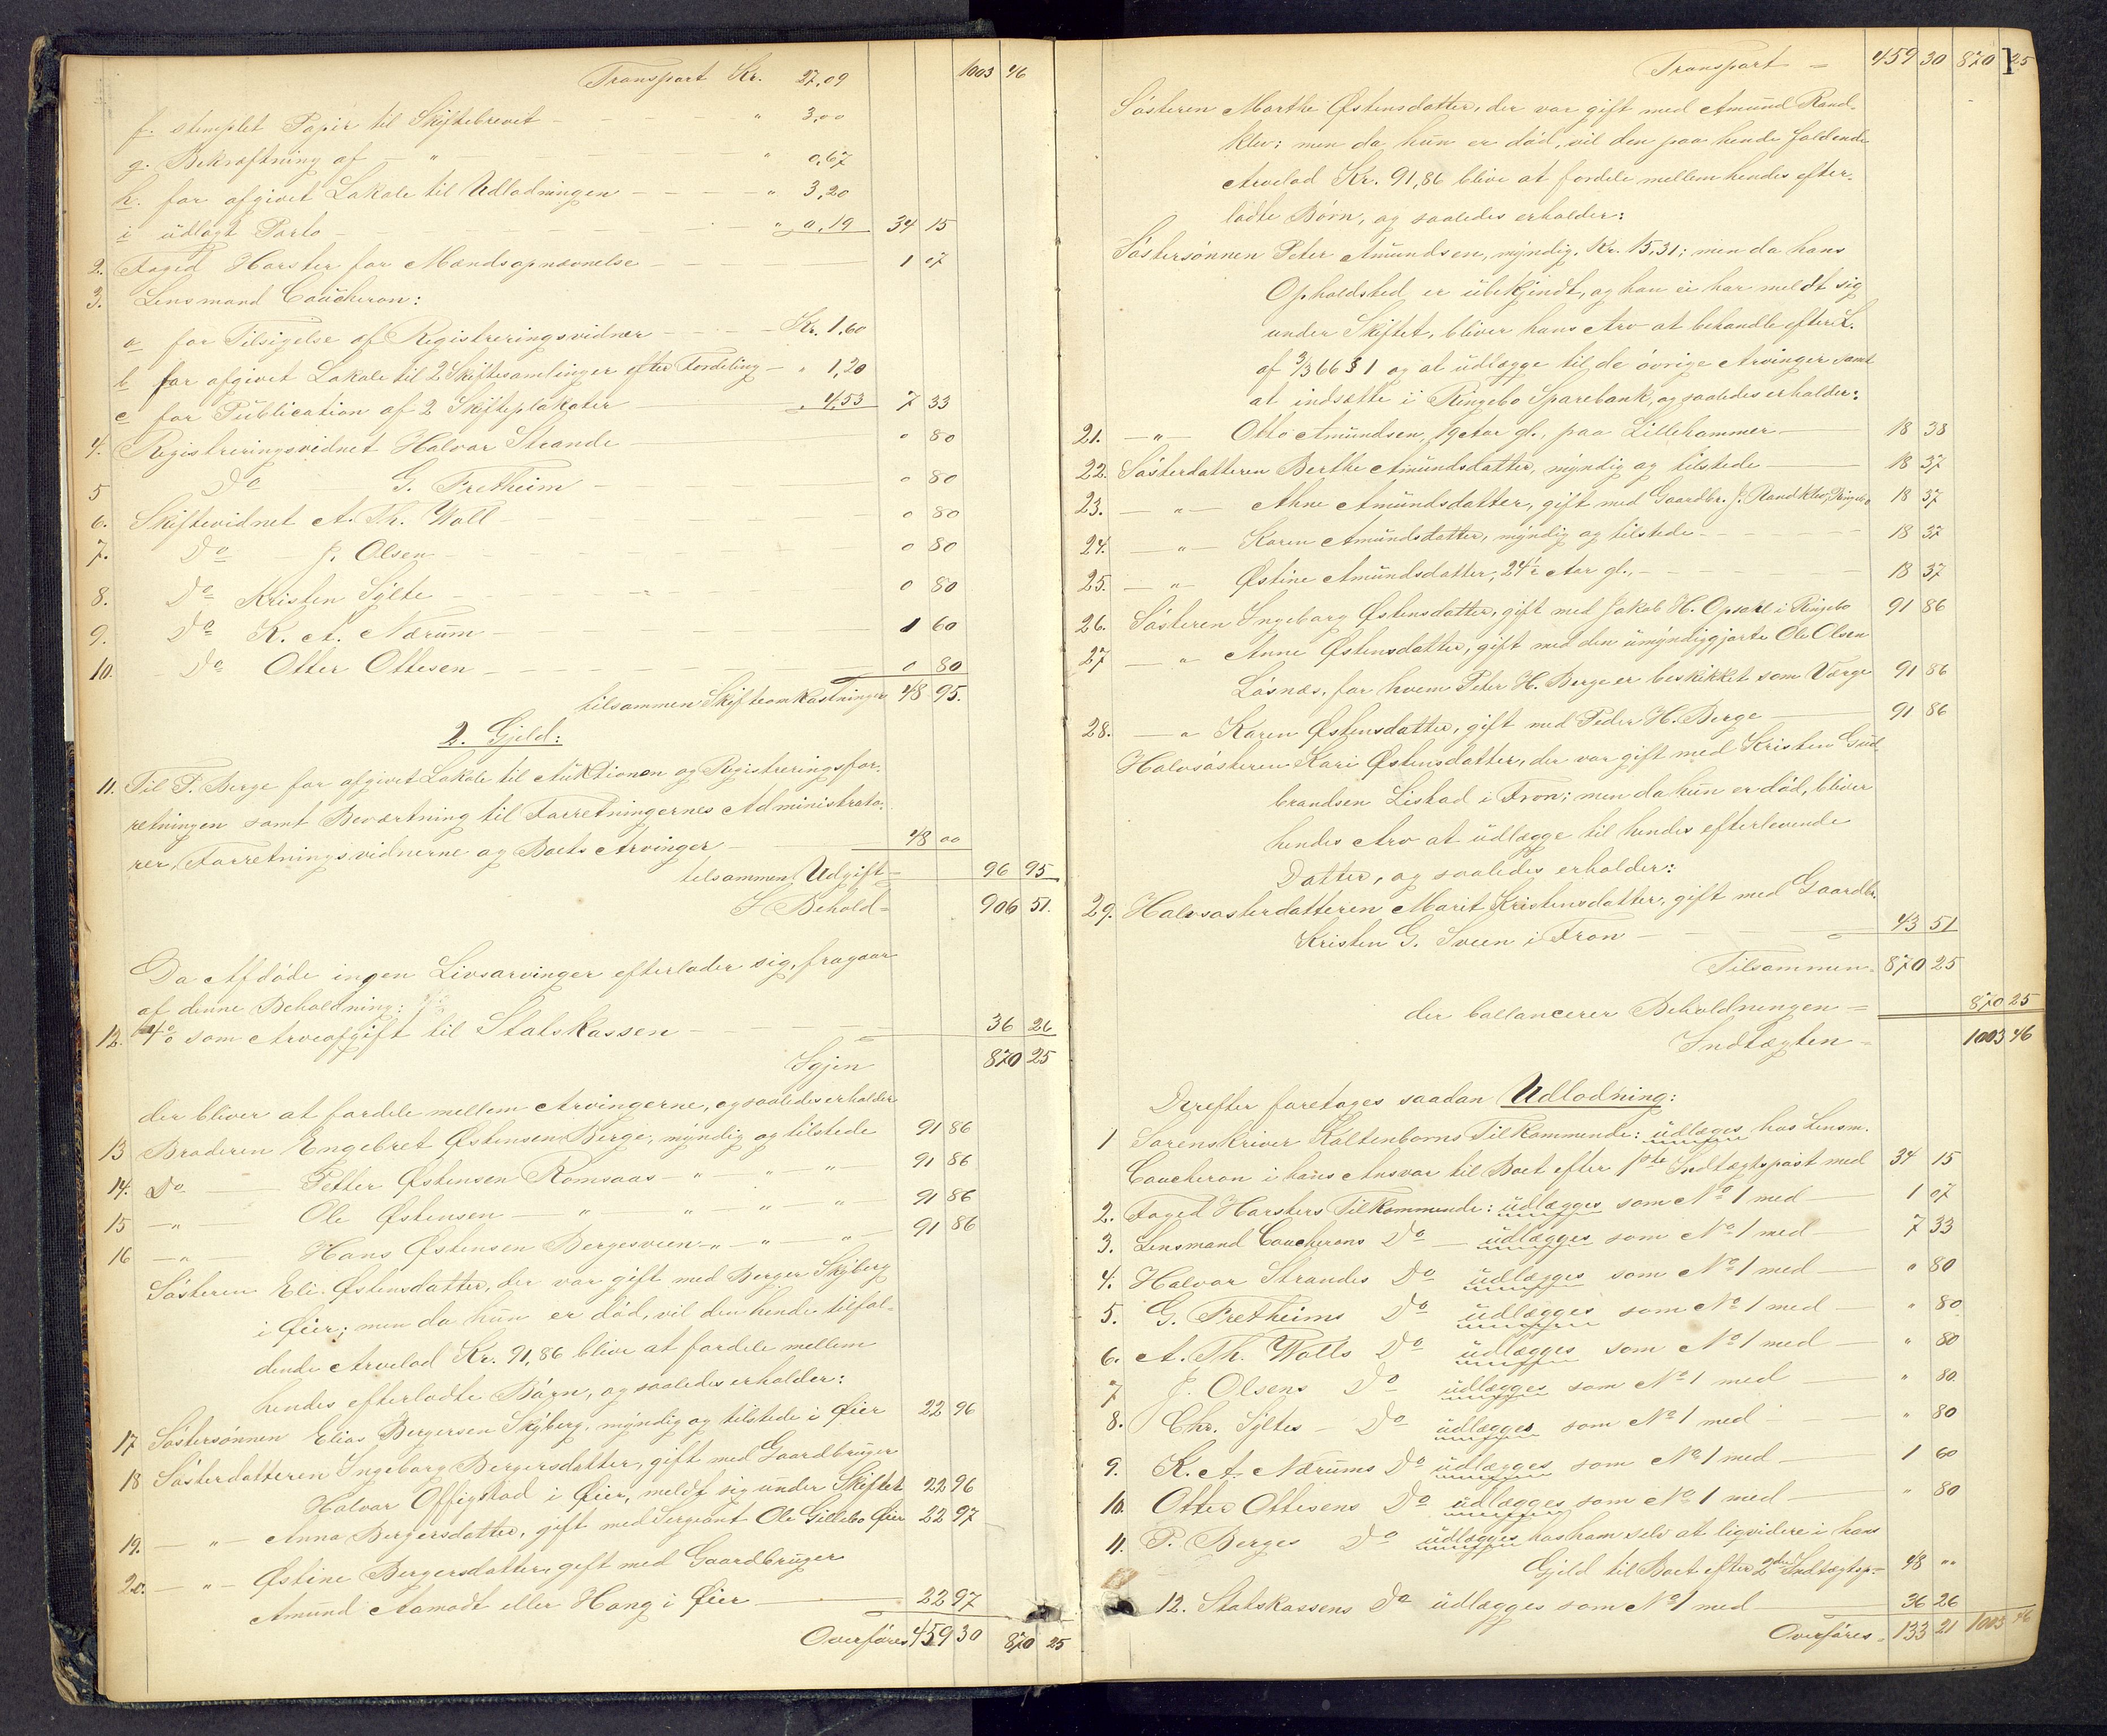 Transport Kr. 27,09 1003 46
f. stemplet Papir til Skiftebrevet - " 3,00
g. Bekræftning af - " - " 0,67
h. for afgivet Lokale til Udlodningen - " 3,20
i udlagt Porto - " 0,19 34 15
2. Foged Harster for Mandsopnævnelse - 1 07
3. Lensmand Coucheron:
a for Tilsigelse af Registreringsvidner - Kr. 1,60
b for afgivet Lokale til 2 Skiftesamlinger efter Fordeling - " 1,20
c for Publication af 2 Skifteplakater - " 4,53 7 33
4. Registreringsvidnet Halvor Strande - " 80
5 Do G. Fretheim - " 80
6. Skiftevidnet A. Th. Woll - " 80
7. Do J. Olsen - " 80
8. Do Kristen Sylte - 0 80
9. Do K. A. Nærum - 1 60
10. Do Otter Ottesen - 0 80
tilsammen Skifteomkostninger 48 95.
2. Gjeld:
11. Til P. Berge for afgivet Lokale til Auktionen og Registreringsfor-
retningen samt Beværtning til Forretningernes Administrato-
rer, Forretningsvidnerne og Boets Arvinger - 48 00
tilsammen Udgift = 96 95
I Behold = 906 51.
Da Afdøde ingen Livsarvinger efterlader sig, fragaar
af denne Beholdning:
12. 4% som Arveafgift til Statskassen - 36 26
Igjen 870 25
der bliver at fordele mellem Arvingerne, og saaledes erholder
13 Broderen Engebret Østensen Berge, myndig og tilstede 91 86
14. Do Petter Østensen Romsaas - " - " - " 91 86
15 - " - Ole Østensen - " - " - " - " 91 86
16 - " - Hans Østensen Bergesveen - " - " - " 91 86
Søsteren Eli Østensdatter, der var gift med Berger Skyberg
i Øier; men da hun er død, vil den hende tilfal-
dende Arvelod Kr. 91,86 blive at fordele mellem
hendes efterladte Børn, og saaledes erholder:
17 Søstersønnen Elias Bergersen Skyberg, myndig og tilstede i Øier 22 96
18 Søsterdatteren Ingeborg Bergersdatter, gift med Gaardbruger
Halvor Offigstad i Øier, meldt sig under Skiftet 22 96
19. - " - Anna Bergersdatter, gift med Sergeant Ole Gillebo Øier 22 97
20. - " - Østine Bergersdatter, gift med Gaardbruger
Amund Aamodt eller Haug i Øier - 22 97
Overføres 459 30 870 25
Transport - 459 30 870 25
Søsteren Marthe Østensdatter, der var gift med Amund Rand-
klev; men da hun er død, vil den paa hende faldende
Arvelod Kr. 91,86 blive at fordele mellem hendes efter-
ladte Børn, og saaledes erholder:
Søstersønnen Peter Amundsen, myndig, Kr. 15,31; men da hans
Opholdsted er ubekjendt, og han ei har meldt sig
under Skiftet, bliver hans Arv at behandle efter L.
af 3/3 66 § 1 og at udlægge til de øvrige Arvinger samt
at indsætte i Ringebo Sparebank, og saaledes erholder:
21. - " - Otto Amundsen, 19 Aar gl., paa Lillehammer - 18 38
22. Søsterdatteren Berthe Amundsdatter, myndig og tilstede - 18 37
23. - " - Ahne Amundsdatter, gift med Gaardbr. J. Randklev, Ringebo 18 37
24. - " - Karen Amundsdatter, myndig og tilstede - 18 37
25. - " - Østine Amundsdatter, 24½ Aar gl., - 18 37
26. Søsteren Ingeborg Østensdatter, gift med Jakob H. Opsahl i Ringebo 91 86
27 - " Anne Østensdatter, gift med den umyndiggjorte Ole Olsen
Løsnæs, for hvem Peter H. Berge er beskikket som Værge 91 86
28. - " Karen Østensdatter, gift med Peder H. Berge - 91 86
Halvsøsteren Kari Østensdatter, der var gift med Kristen Gud-
brandsen Listad i Fron; men da hun er død, bliver
hendes Arv at udlægge til hendes efterlevende
Datter, og saaledes erholder:
29. Halvsøsterdatteren Marit Kristensdatter, gift med Gaardbr.
Kristen G. Sveen i Fron - 43 51
Tilsammen 870 25
der ballancerer Beholdningen = 870 25
Indtægten = 1003 46
Derefter foretages saadan Udlodning:
1 Sorenskriver Kaltenborns Tilkommende: udlægges hos Lensm.
Coucheron i hans Ansvar til Boet efter 1ste Indtægtspost med 34 15
2. Foged Harsters Tilkommende: udlægges som No 1 med - 1 07
3. Lensmand Coucherons Do - udlægges som No 1 med - 7 33
4. Halvor Strandes Do udlægges som No 1 med - " 80
5. G. Fretheims Do udlægges som No 1 med - " 80
6. A. Th. Wolls Do udlægges som No 1 med - " 80
7 J. Olsens Do udlægges som No 1 med - " 80
8. Chr. Syltes - Do udlægges som No 1 med - " 80
9. K. A. Nærums Do udlægges som No 1 med - 1 60
10. Otter Ottesens Do udlægges som No 1 med - " 80
11. P. Berges Do udlægges hos ham selv at liqvidere i hans
Gjeld til Boet efter 2den Indtægtsp. - 48 "
12. Statskassens Do udlægges som No 1 med 36 26
Overføres - 133 21 1003 46